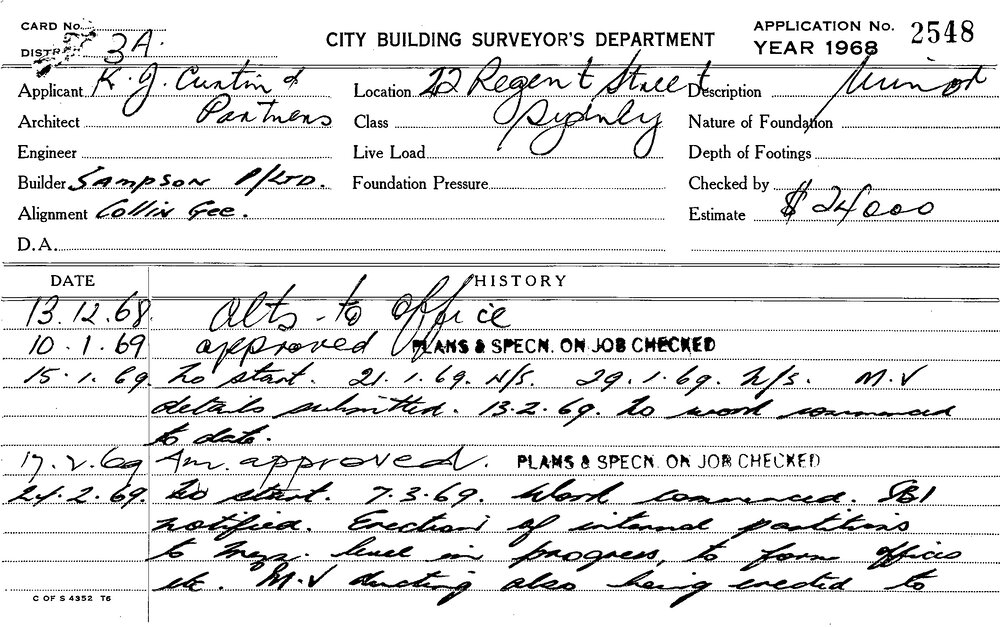 CARD No.
DISTRICT 3A.
CITY BUILDING SURVEYOR'S DEPARTMENT
APPLICATION No. 2548
YEAR 1968
Applicant K. J. Curtin & Partners
Location 22 Regent Street Sydney
Description Minor
Architect
Class
Nature of Foundation
Engineer
Live Load
Depth of Footings
Builder Sampson P/LTD.
Foundation Pressure
Checked by
Alignment Collin Gee.
Estimate $ 24000
D.A.
DATE HISTORY
13.12.68. Alts - to office
10.1.69 approved PLANS & SPECN. ON JOB CHECKED
15.1.69. No start. 21.1.69. N/S. 29.1.69. N/S. M.V
details submitted. 13.2.69. No work commenced
to date.
17.2.69 Am. approved. PLANS & SPECN. ON JOB CHECKED
24.2.69. No start. 7.3.69. Work commenced. SBI
notified. Erection of internal partitions
to Mezz. level in progress, to form offices
etc. M.V ducting also being erected to
C OF S 4352 T6